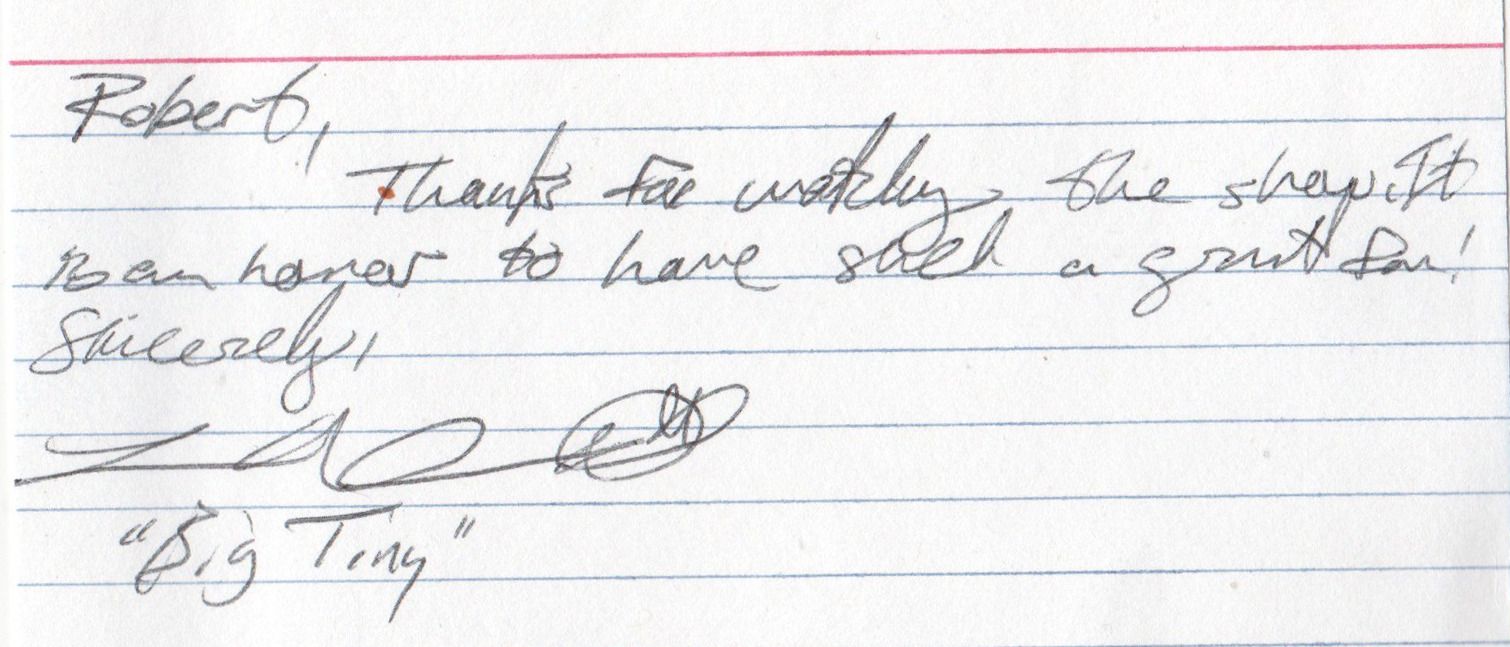 Robert,
Thanks for watching the show. It
is an honor to have such a great fan!
Sincerely,
"Big Tiny"